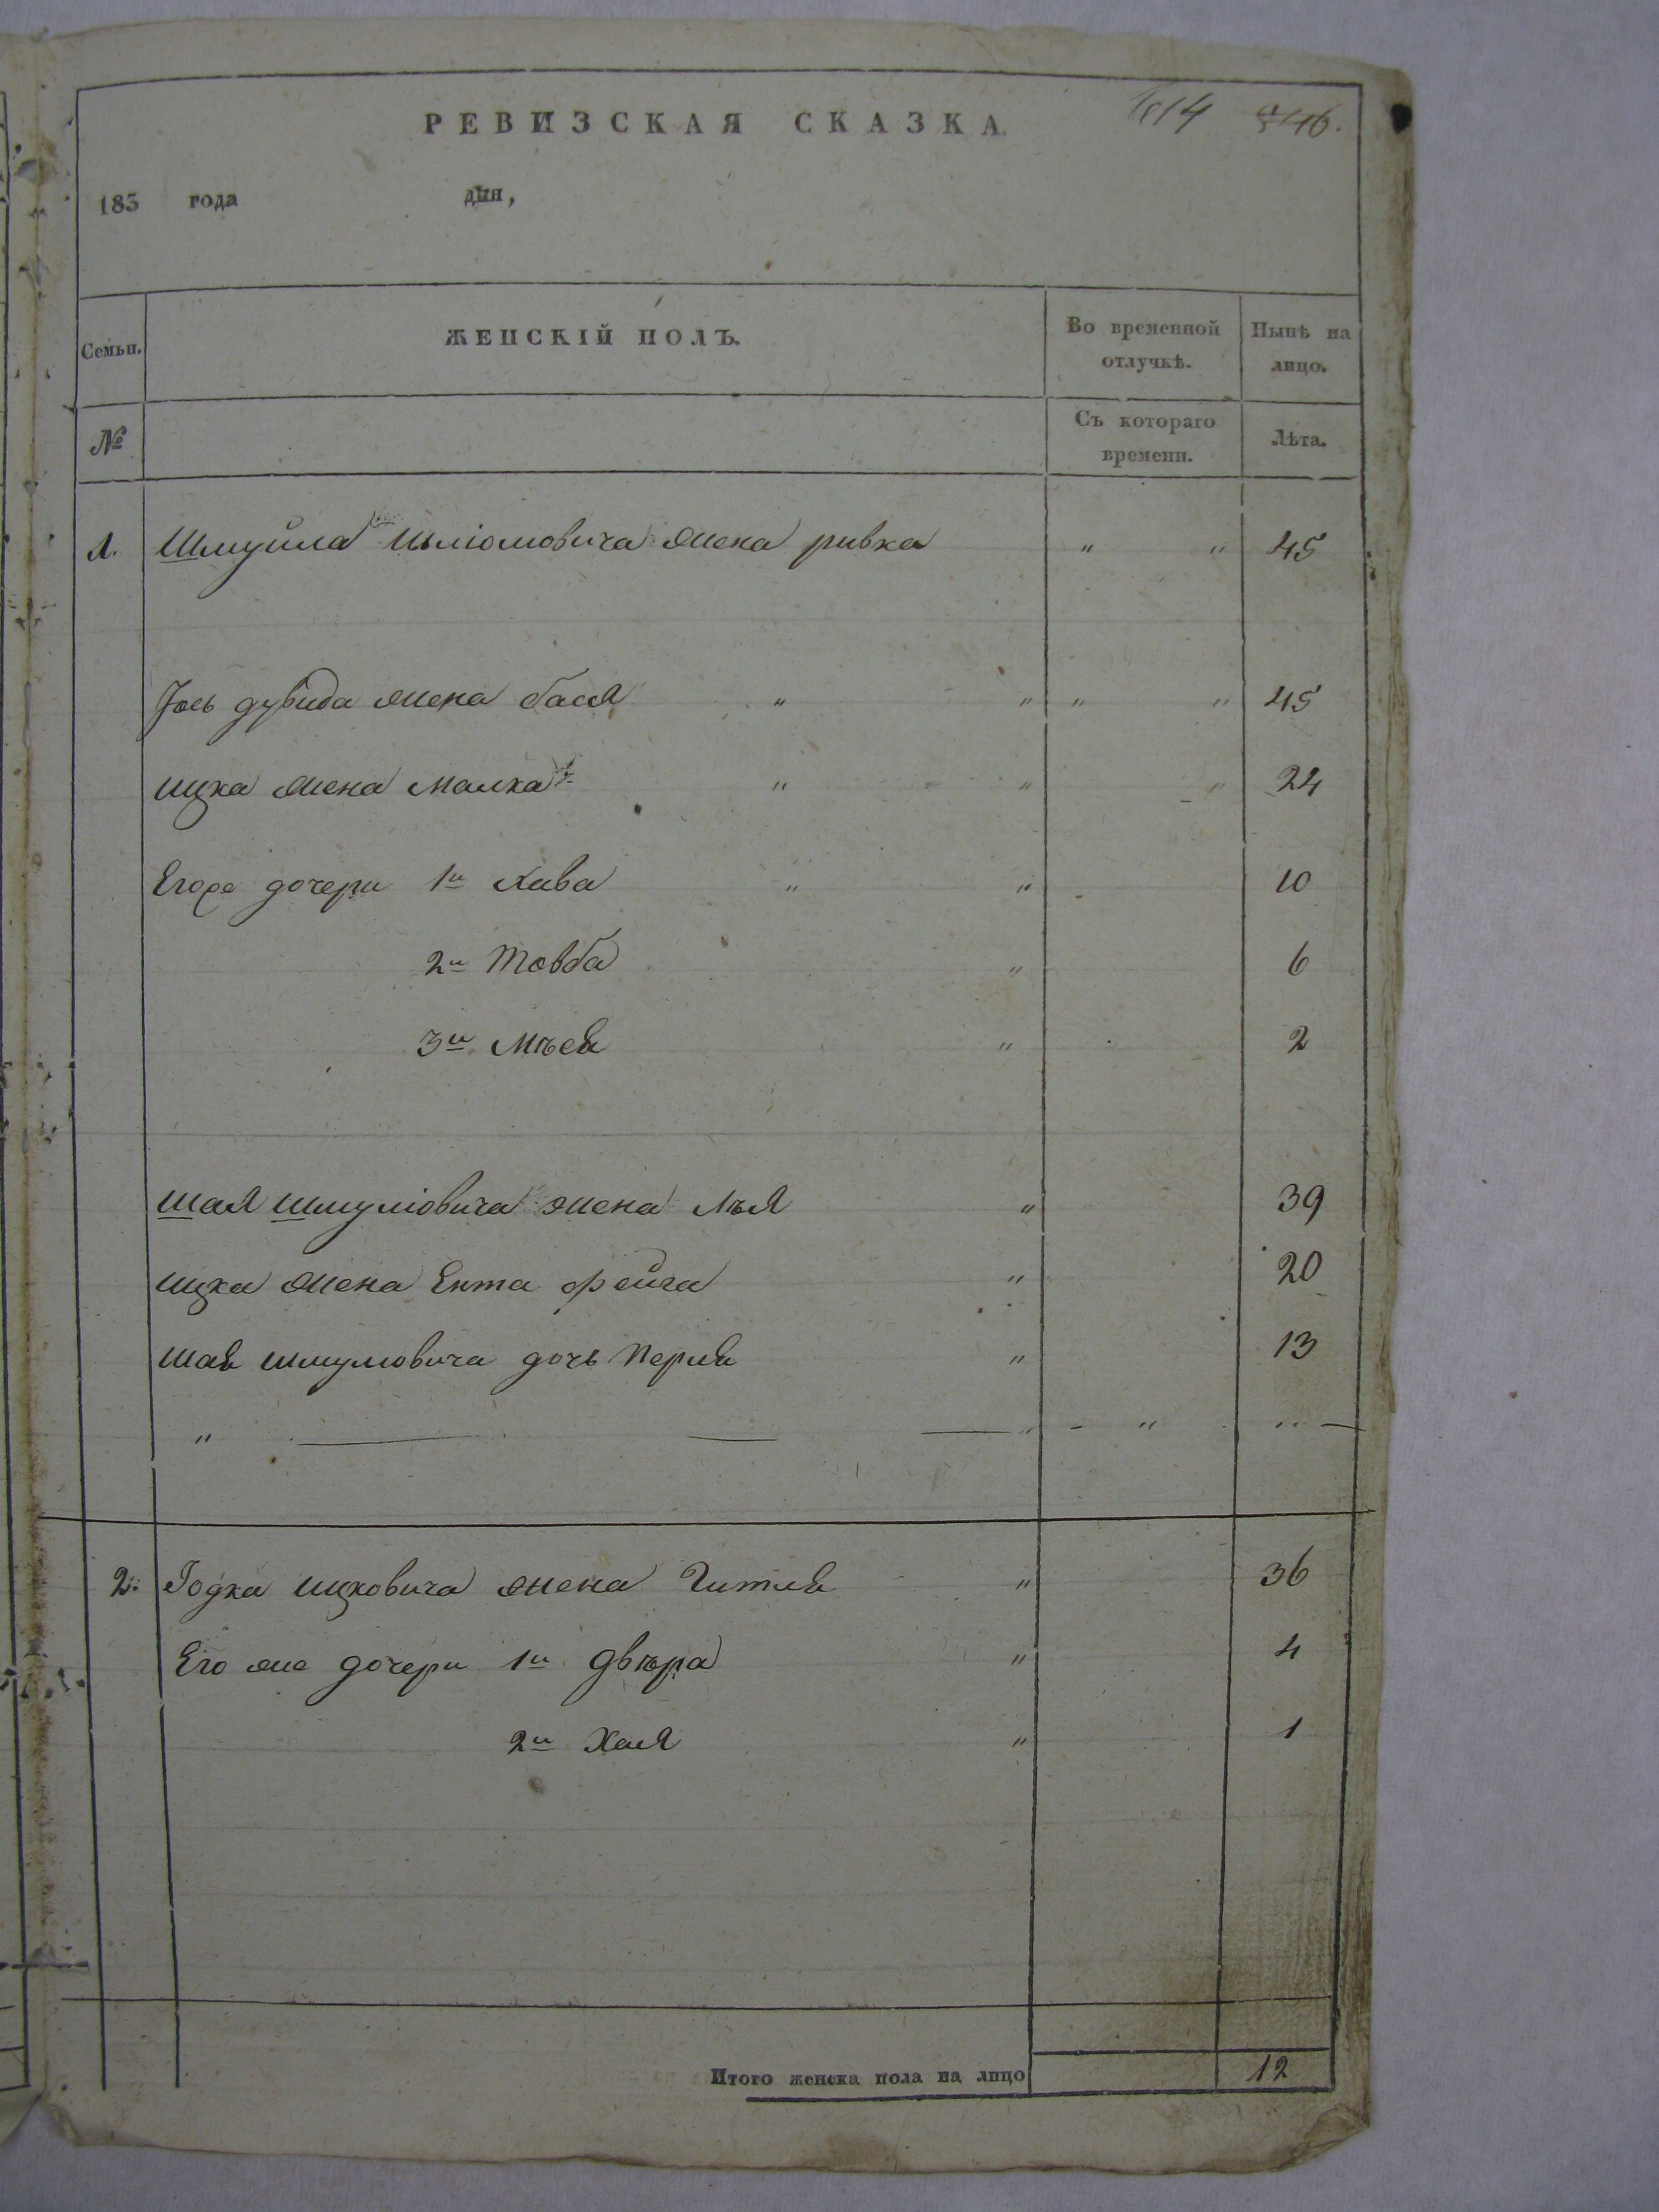 РЕВИЗСКАЯ СКАЗКА.
183 года дня,
Семьи. ЖЕНСКІЙ ПОЛЪ. Во временной отлучкѣ. Нынѣ на лицо.
№ Съ котораго времени. Лѣта.
1. Шмуйла Шліомовича жена ривка " " 45
Іось дувида жена бася " " " " 45
ицка жена малка " " " 24
Его же дочери 1я Хава " " 10
2я Товба " 6
3я " 2
шая шмуліовича жена Лѣя " 39
ицка жена Ента фейга " 20
шая шмуловича дочь Перля " 13
" — — — " - " " —
2. Годка ицковича жена Гитля " 36
Его же дочери 1я двѣра " 4
2я Хая " 1
Итого женска пола на лицо 12